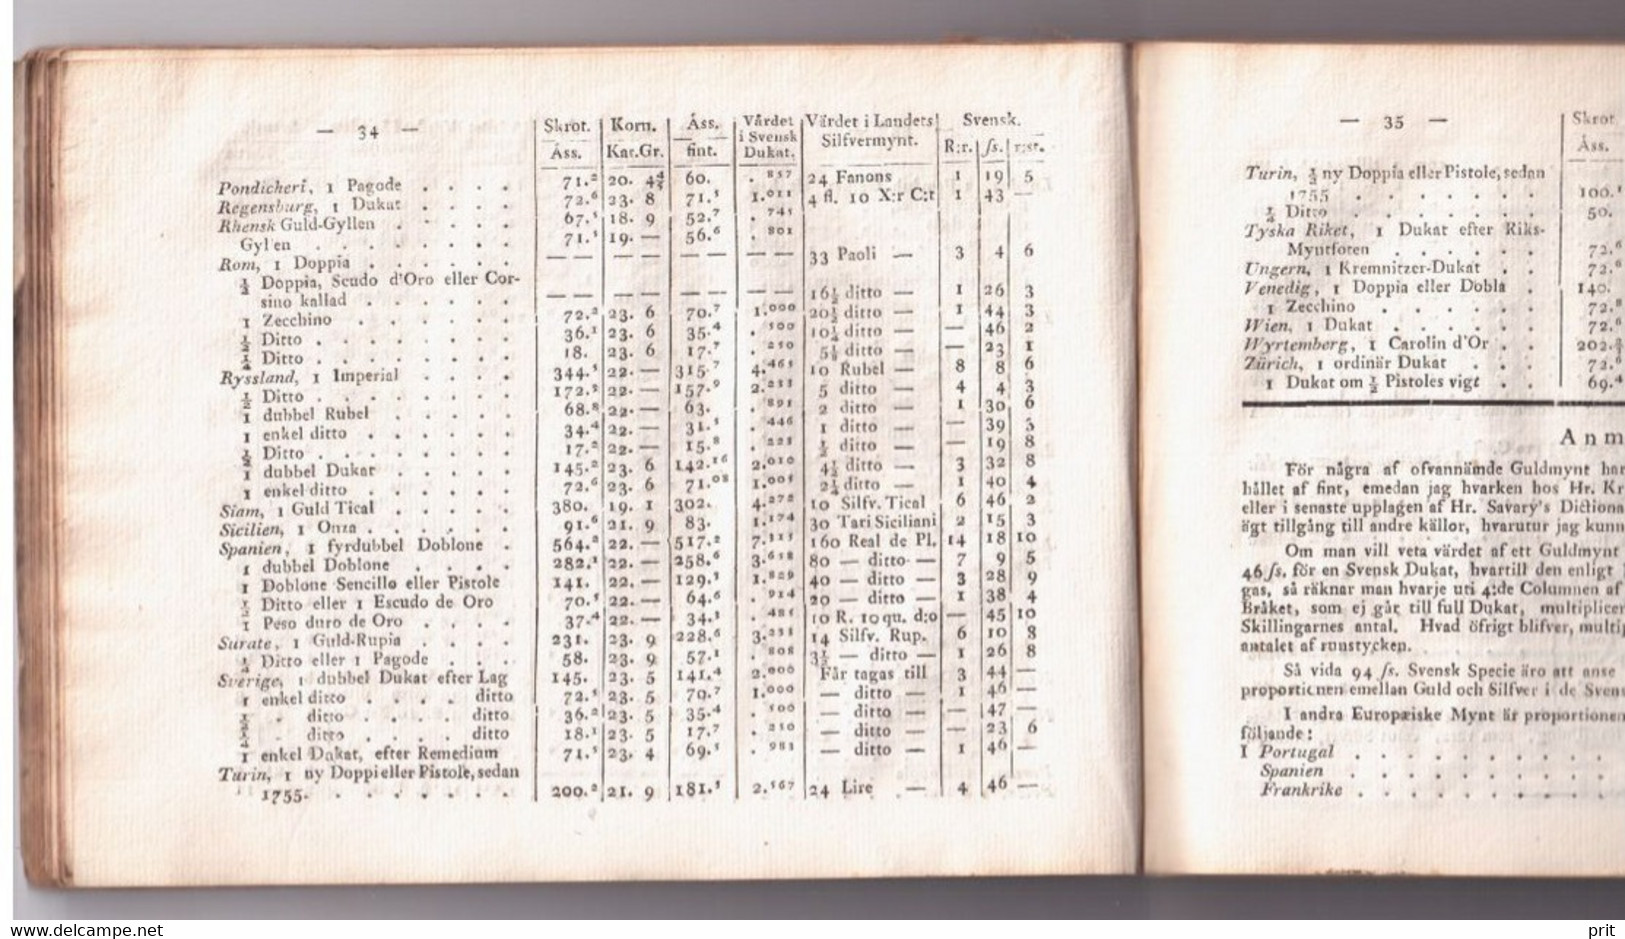 — 34 —
Skrot. | Korn. | Åss. | Värdet i Svensk Dukat. | Värdet i Landets Silfvermynt. | Svensk.
Åss. | Kar.Gr. | fint. | R:r. | ſs. | r:st.
Pondicheri, 1 Pagode . . . . 71.² 20. 4⅘ 60. . ⁸³⁷ 24 Fanons 1 19 5
Regensburg, 1 Dukat . . . . 72.⁶ 23. 8 71.⁵ 1.⁰¹¹ 4 fl. 10 X:r C:t 1 43 —
Rhensk Guld-Gyllen . . . . 67.⁵ 18. 9 52.⁷ . ⁷⁴⁵
Gyllen . . . . . . 71.⁵ 19. — 56.⁶ . ⁸⁰¹
Rom, 1 Doppia . . . . . — — — — — — — — 33 Paoli — 3 4 6
½ Doppia, Scudo d'Oro eller Cor-
sino kallad . . . . . — — — — — — — — 16½ ditto — 1 26 3
1 Zecchino . . . . . 72.² 23. 6 70.⁷ 1.⁰⁰⁰ 20½ ditto — 1 44 3
½ Ditto . . . . . . . 36.¹ 23. 6 35.⁴ . ⁵⁰⁰ 10¼ ditto — — 46 2
¼ Ditto . . . . . . . 18. 23. 6 17.⁷ . ²⁵⁰ 5⅛ ditto — — 23 1
Ryssland, 1 Imperial . . . . 344.⁵ 22. — 315.⁷ 4.⁴⁶⁵ 10 Rubel — 8 8 6
½ Ditto . . . . . . . 172.² 22. — 157.⁹ 2.²³³ 5 ditto — 4 4 3
1 dubbel Rubel . . . . 68.⁸ 22. — 63. . ⁸⁹¹ 2 ditto — 1 30 6
1 enkel ditto . . . . . 34.⁴ 22. — 31.⁵ . ⁴⁴⁶ 1 ditto — — 39 3
½ Ditto . . . . . . . 17.² 22. — 15.⁸ . ²²³ ½ ditto — — 19 8
1 dubbel Dukat . . . . 145.² 23. 6 142.¹⁶ 2.⁰¹⁰ 4½ ditto — 3 32 8
1 enkel ditto . . . . . 72.⁶ 23. 6 71.⁰⁸ 1.⁰⁰⁵ 2¼ ditto — 1 40 4
Siam, 1 Guld Tical . . . . . 380. 19. 1 302. 4.²⁷² 10 Silfv. Tical 6 46 2
Sicilien, 1 Onza . . . . . . 91.⁶ 21. 9 83. 1.¹⁷⁴ 30 Tari Siciliani 2 15 3
Spanien, 1 fyrdubbel Doblone . 564.² 22. — 517.² 7.³¹⁵ 160 Real de Pl. 14 18 10
1 dubbel Doblone . . . . 282.¹ 22. — 258.⁶ 3.⁶⁵⁸ 80 — ditto — 7 9 5
1 Doblone Sencillo eller Pistole 141. 22. — 129.³ 1.⁸²⁹ 40 — ditto — 3 28 9
½ Ditto eller 1 Escudo de Oro 70.⁵ 22. — 64.⁶ . ⁹¹⁴ 20 — ditto — 1 38 4
1 Peso duro de Oro . . . . 37.⁴ 22. — 34.³ . ⁴⁸⁵ 10 R. 10 qu. d:o — 45 10
Surate, 1 Guld-Rupia . . . . 231. 23. 9 228.⁶ 3.²³³ 14 Silfv. Rup. 6 10 8
¼ Ditto eller 1 Pagode . . . 58. 23. 9 57.¹ . ⁸⁰⁸ 3½ — ditto — 1 26 8
Sverige, 1 dubbel Dukat efter Lag 145. 23. 5 141.⁴ 2.⁰⁰⁰ Får tagas till 3 44 —
1 enkel ditto . . . . ditto 72.⁵ 23. 5 70.⁷ 1.⁰⁰⁰ — ditto — 1 46 —
½ . ditto . . . . ditto 36.² 23. 5 35.⁴ . ⁵⁰⁰ — ditto — — 47 —
¼ . ditto . . . . ditto 18.¹ 23. 5 17.⁷ . ²⁵⁰ — ditto — — 23 6
1 enkel Dukat, efter Remedium 71.⁵ 23. 4 69.⁵ . ⁹⁸³ — ditto — 1 46 —
Turin, 1 ny Doppi eller Pistole, sedan
1755. . . . . . . 200.² 21. 9 181.⁵ 2.⁵⁶⁷ 24 Lire — 4 46 —
— 35 —
Skrot
Åss.
Turin, ½ ny Doppia eller Pistole, sedan
1755 . . . . . . 100.¹
¼ Ditto . . . . . . 50.
Tyska Riket, 1 Dukat efter Riks-
Myntfoten . . . . . 72.⁶
Ungern, 1 Kremnitzer-Dukat . . 72.⁶
Venedig, 1 Doppia eller Dobla . 140.
1 Zecchino . . . . . 72.⁸
Wien, 1 Dukat . . . . . . 72.⁶
Wyrtemberg, 1 Carolin d'Or . . 202.
Zürich, 1 ordinär Dukat . . . 72.⁶
1 Dukat om ½ Pistoles vigt . . 69.⁴
Anm
För några af ofvannämde Guldmynt har
hållet af fint, emedan jag hvarken hos Hr. Kr
eller i senaste upplagen af Hr. Savary's Dictiona
ägt tillgång till andre källor, hvarutur jag kunn
Om man vill veta värdet af ett Guldmynt
46 ſs. för en Svensk Dukat, hvartill den enligt
gas, så räknar man hvarje uti 4:de Columnen af
Bråket, som ej går till full Dukat, multiplicer
Skillingarnes antal. Hvad öfrigt blifver, multip
antalet af runstycken.
Så vida 94 ſs. Svensk Specie äro att anse
proportionen emellan Guld och Silfver i de Svens
I andra Europæiske Mynt är proportionen
följande:
I Portugal . . . . . . . .
Spanien . . . . . . . .
Frankrike . . . . . . . .
www.delcampe.net
prit